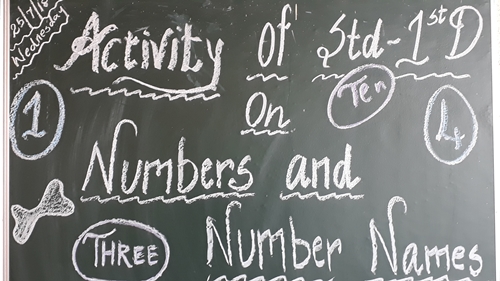 25/7/18
Wednesday
Activity Of Std-1st D
On
Ten
1
4
Numbers and
THREE
Number Names